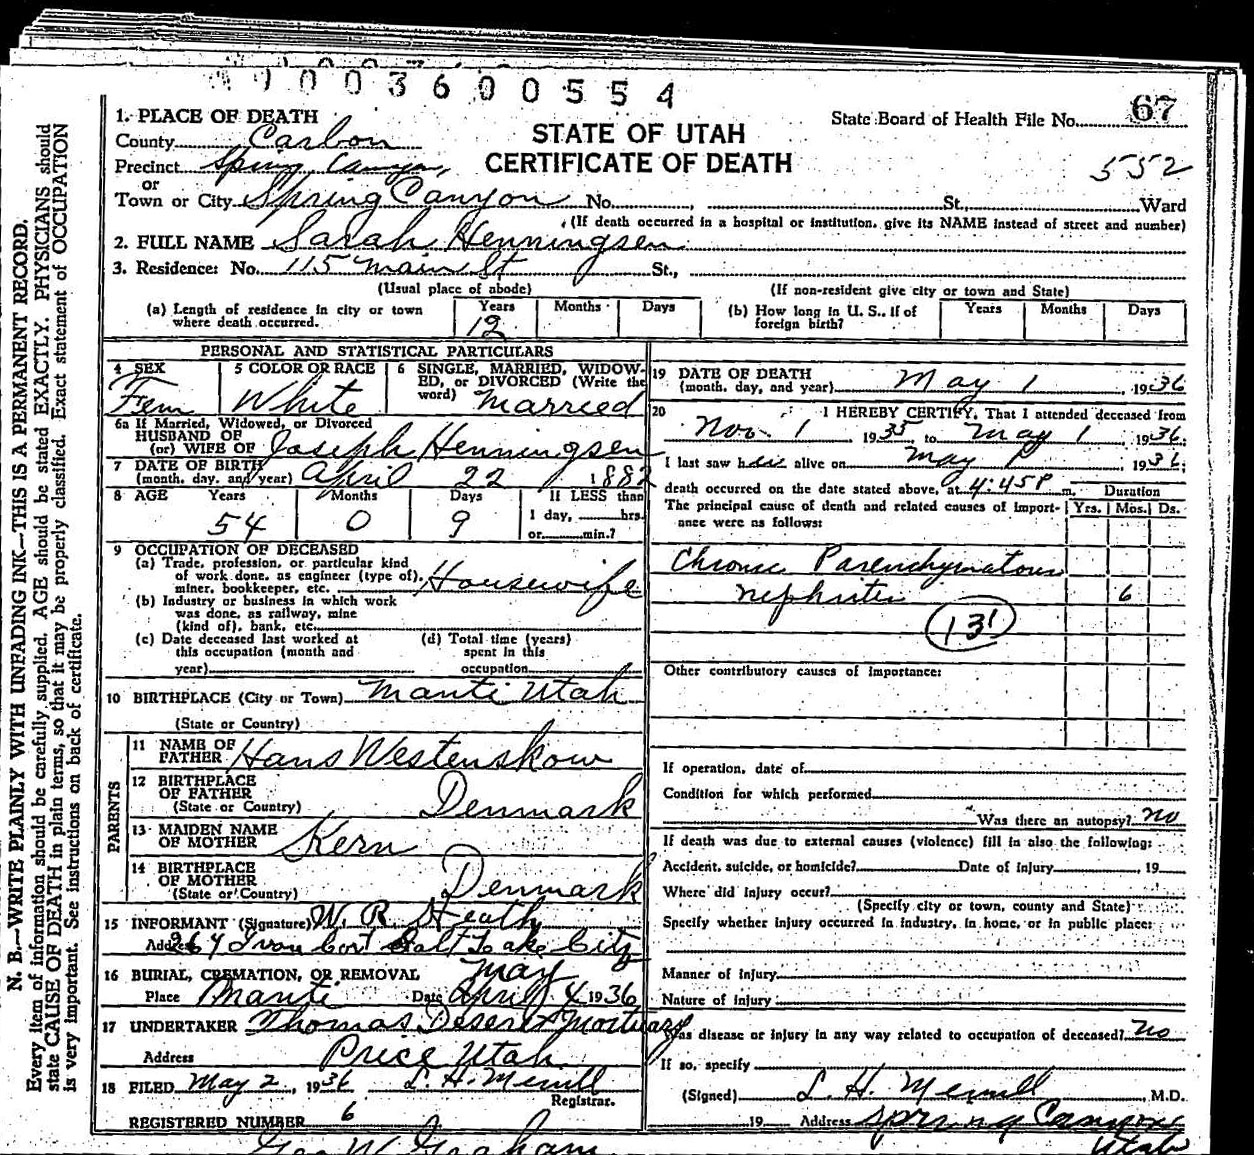 1003600554
1. PLACE OF DEATH
State Board of Health File No. 67
County Carbon
STATE OF UTAH
CERTIFICATE OF DEATH
552
Precinct Spring Canyon,
or
Town or City Spring Canyon No. , St., Ward
(If death occurred in a hospital or institution, give its NAME instead of street and number)
2. FULL NAME Sarah Henningsen
3. Residence: No. 115 Main St St.,
(Usual place of abode) (If non-resident give city or town and State)
(a) Length of residence in city or town where death occurred. Years 12 Months Days
(b) How long in U. S., if of foreign birth? Years Months Days
PERSONAL AND STATISTICAL PARTICULARS
4 SEX Fem
5 COLOR OR RACE White
6 SINGLE, MARRIED, WIDOW-
ED, or DIVORCED (Write the
word) Married
6a If Married, Widowed, or Divorced
HUSBAND OF
(or) WIFE OF Joseph Henningsen
7 DATE OF BIRTH
(month, day, and year) April 22 1882
8 AGE Years 54 Months 0 Days 9 If LESS than
1 day, hrs.
or min.?
9 OCCUPATION OF DECEASED
(a) Trade, profession, or particular kind
of work done, as engineer (type of),
miner, bookkeeper, etc. Housewife
(b) Industry or business in which work
was done, as railway, mine
(kind of), bank, etc.
(c) Date deceased last worked at
this occupation (month and
year)
(d) Total time (years)
spent in this
occupation
10 BIRTHPLACE (City or Town) Manti Utah
(State or Country)
PARENTS
11 NAME OF
FATHER Hans Westenskow
12 BIRTHPLACE
OF FATHER
(State or Country) Denmark
13 MAIDEN NAME
OF MOTHER Kern
14 BIRTHPLACE
OF MOTHER
(State or Country) Denmark
15 INFORMANT (Signature) W. R. Heath
Address 264 Ivan Cort Salt Lake City
16 BURIAL, CREMATION, OR REMOVAL May
Place Manti Date April 4 1936
17 UNDERTAKER Thomas Deseret Mortuary
Address Price Utah
18 FILED May 2, 1936 L. H. Merrill
Registrar.
REGISTERED NUMBER 6
Geo W Graham
19 DATE OF DEATH
(month, day, and year) May 1 1936
20 I HEREBY CERTIFY, That I attended deceased from
Nov 1 1935, to May 1 1936;
I last saw her alive on May 1 1936;
death occurred on the date stated above, at 4:45P m. Duration
The principal cause of death and related causes of import-
ance were as follows: Yrs. Mos. Ds.
Chronic Parenchymatous
Nephritis 6
131
Other contributory causes of importance:
If operation, date of
Condition for which performed
Was there an autopsy? no
If death was due to external causes (violence) fill in also the following:
Accident, suicide, or homicide? Date of injury , 19
Where did injury occur?
(Specify city or town, county and State)
Specify whether injury occurred in industry, in home, or in public place:
Manner of injury
Nature of injury
Was disease or injury in any way related to occupation of deceased? no
If so, specify
(Signed) L. H. Merrill, M.D.
19 Address Spring Canyon
Utah
N. B.—WRITE PLAINLY WITH UNFADING INK—THIS IS A PERMANENT RECORD.
Every item of information should be carefully supplied. AGE should be stated EXACTLY. PHYSICIANS should
state CAUSE OF DEATH in plain terms, so that it may be properly classified. Exact statement of OCCUPATION
is very important. See instructions on back of certificate.